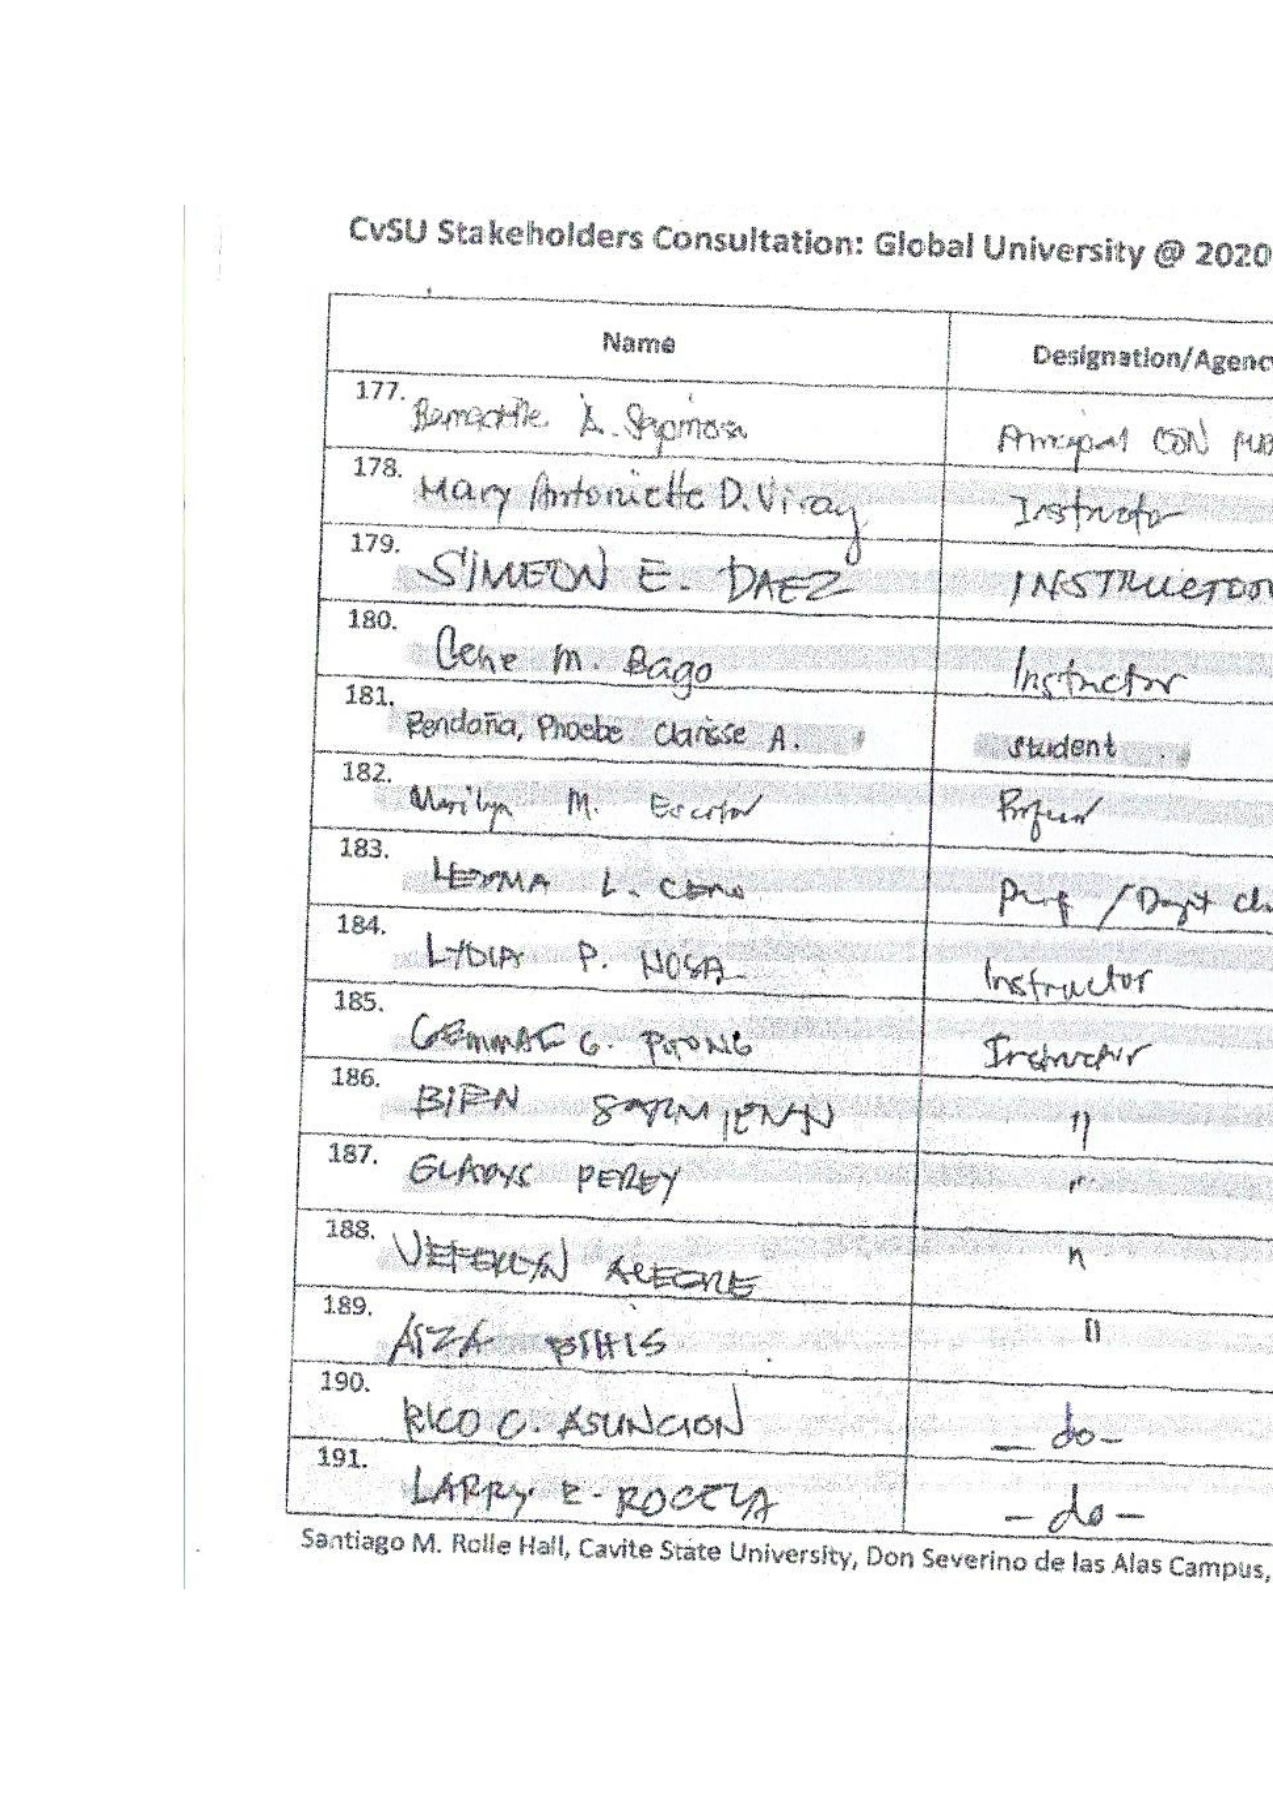 CvSU Stakeholders Consultation: Global University @ 2020
Name Designation/Agency
177. A. Espinosa
178. Mary Antoniette D. Viray Instructor
179. SIMEON E. DAEZ INSTRUCTOR
180. Gene M. Bago Instructor
181. Rendaña, Phoebe Clarisse A. student
182. Marilyn M. Escobar
183. L. Prof /Dept
184. LYDIA P. NOSA Instructor
185. G. Instructor
186. BIEN SARMIENTO "
187. GLADYS PEREY "
188. ALEGRE "
189. AIZA "
190. RICO C. ASUNCION - do -
191. LARRY E. ROCELA - do -
Santiago M. Rolle Hall, Cavite State University, Don Severino de las Alas Campus,